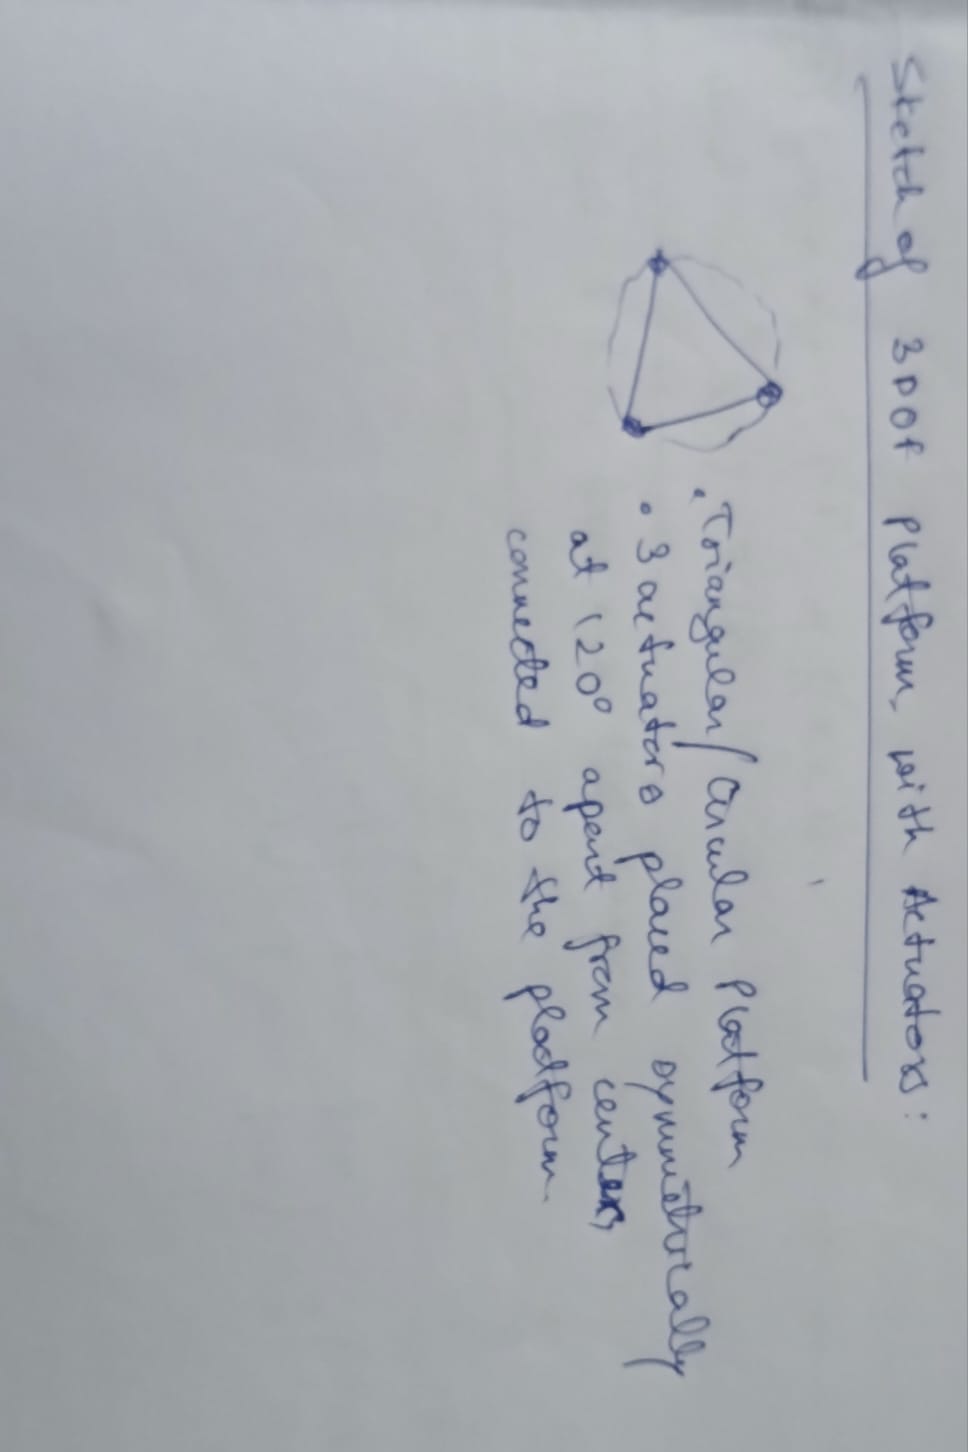 Sketch of 3DOF Platform, with Actuators:
• Triangular/Circular Platform
• 3 actuators placed symmetrically
at 120° apart from center,
connected to the platform.